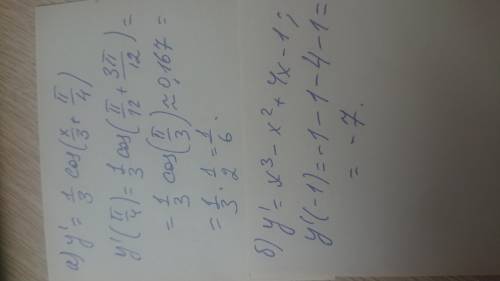 а) y' = 1/3 cos(x/3 + π/4)
y'(π/4) = 1/3 cos(π/12 + 3π/12) =
= 1/3 cos(π/3) ≈ 0,167 =
= 1/3 · 1/2 = 1/6.
б) y' = x³ - x² + 4x - 1;
y'(-1) = -1 - 1 - 4 - 1 =
= -7.